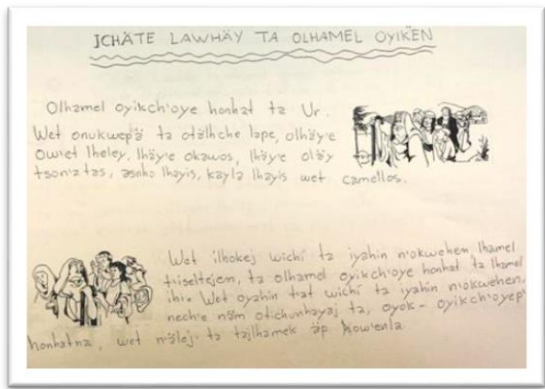 ICHÄTE LAWHÄY TA OLHAMEL OYIKEN
Olhamel oyikch'oye honhat ta Ur.
Wet onukwepä ta otälhche lape, olhäy'e
Owiet lheley, lhäy'e okawos, lhäy'e oläy
tson'atas, asnho lhayis, kayla lhayis wet camellos.
Wet ilhokej wichi ta iyahin n'okwehen lhamel
t'iseltejem, ta olhamel oyikch'oye honhat ta lhamel
ihi. Wet oyahin t'at wichi ta iyahin n'okwehen,
nech'e näm otichunhayaj ta, oyok- oyikch'oyep
honhatna, wet n'älej ta tajlhamek äp howenla.